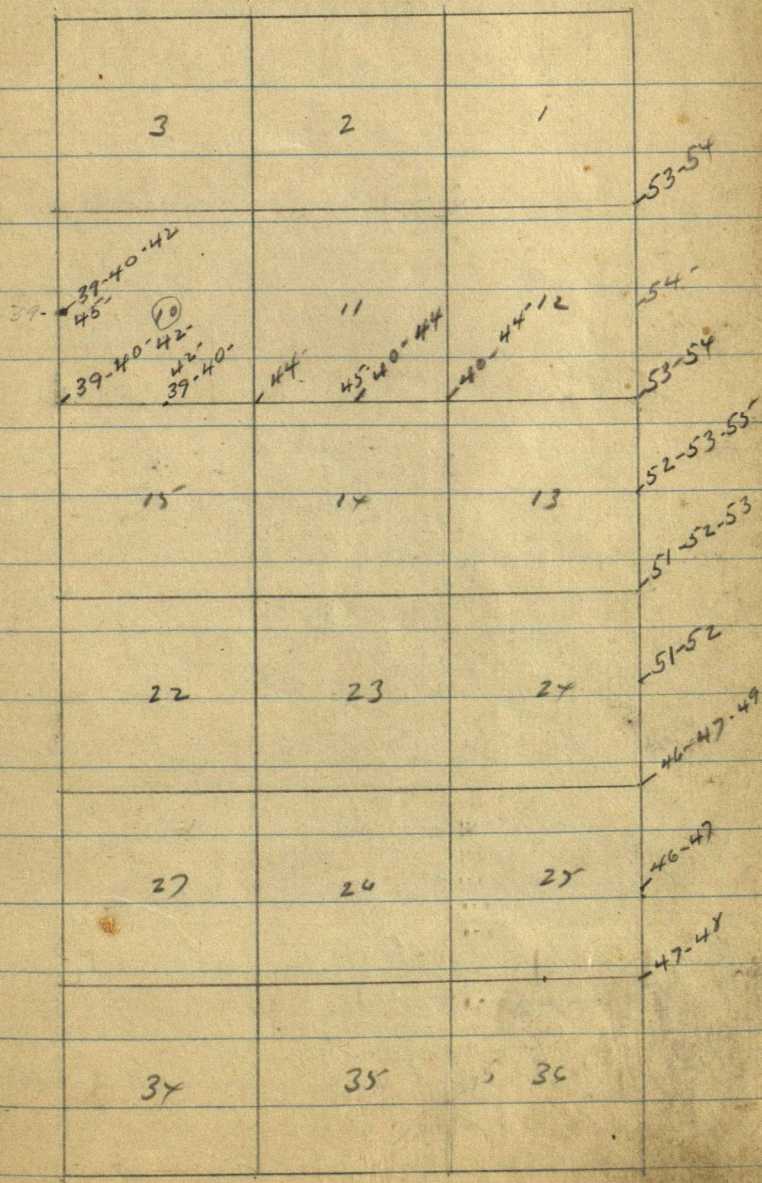 3 2 1
53-54
39-40-42
39- 45-
10 11 12
54-
39-40-42-
42-
39-40-
44-
45-40-44
40-44-
53-54
52-53-55
15 14 13
51-52-53
51-52
22 23 24
46-47-49
46-47
27 26 25
47-48
34 35 36